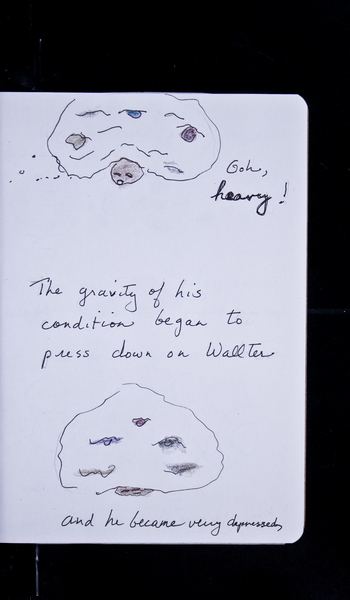 Ooh,
heavy!
The gravity of his
condition began to
press down on Wallter
and he became very depressed,